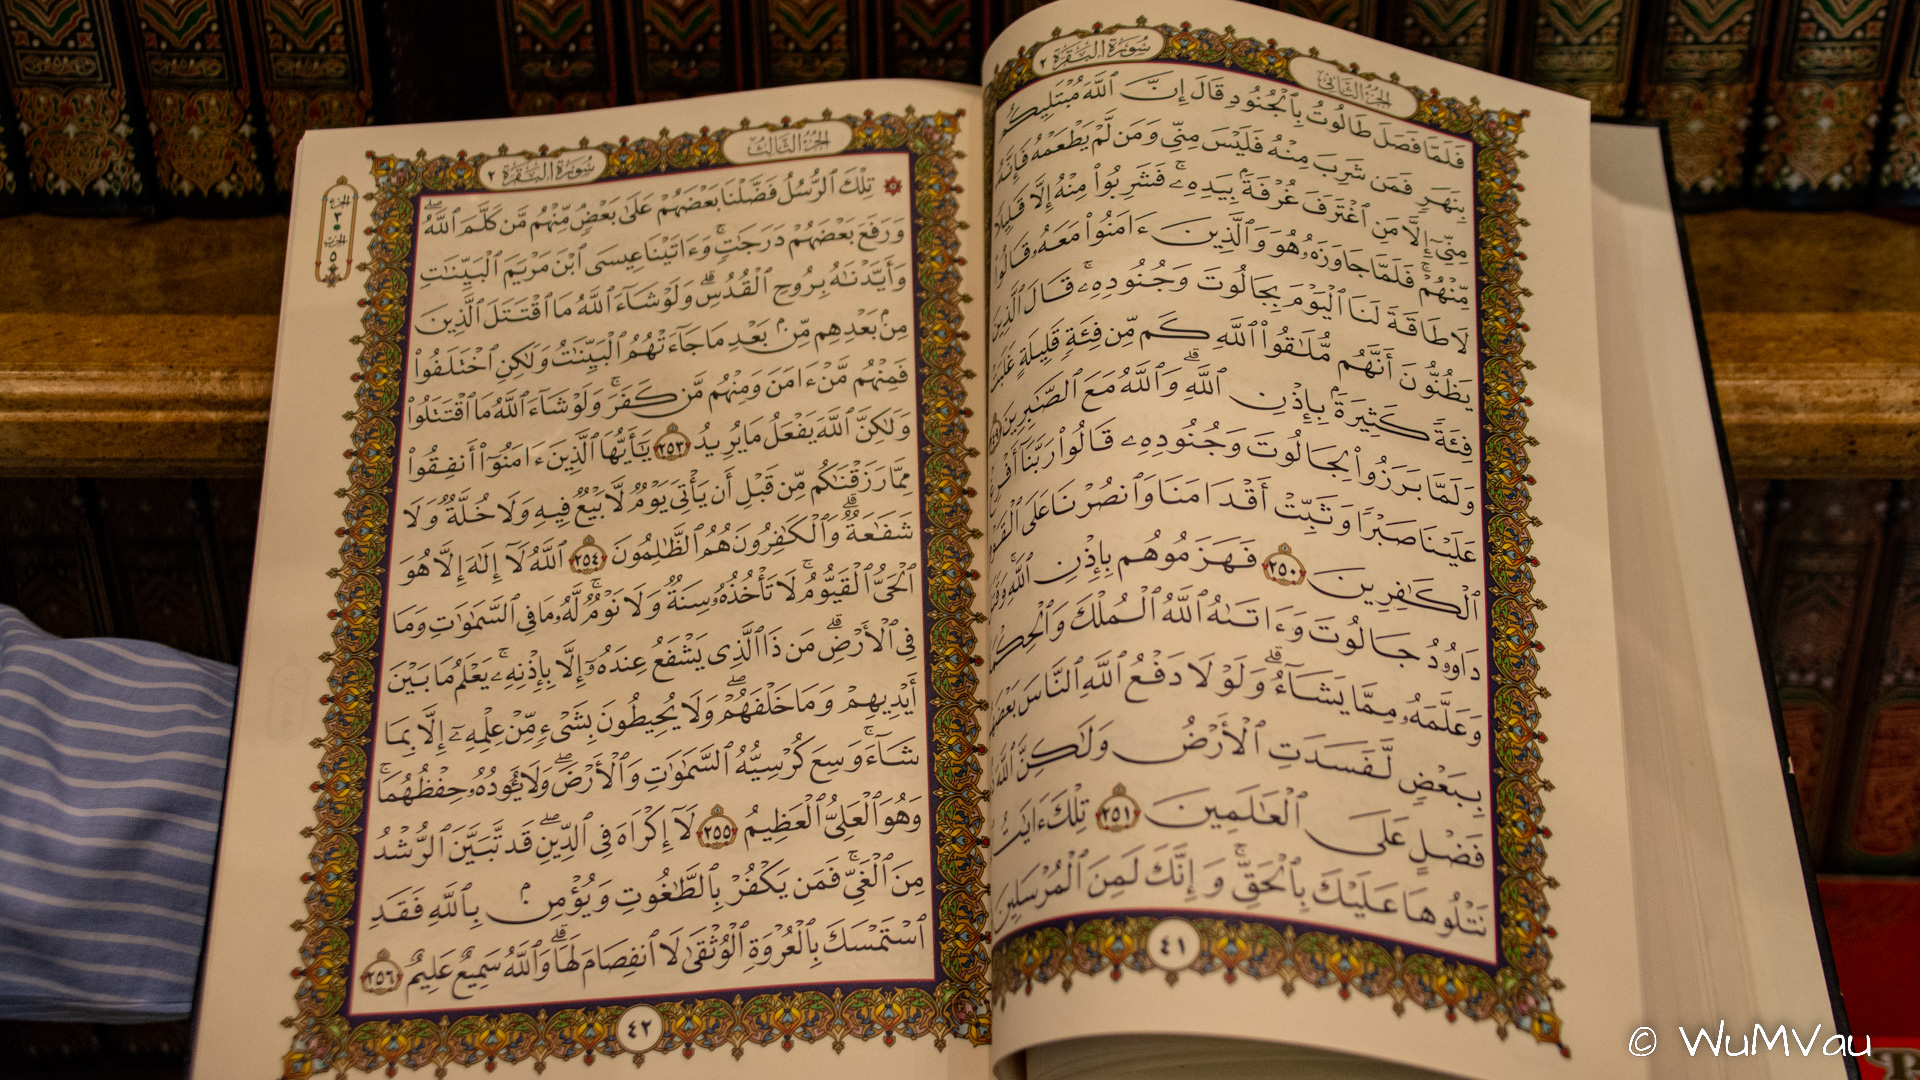 سُورَةُ البَقَرَةِ ٢
الجُزءُ الثَّانِي
فَلَمَّا فَصَلَ طَالُوتُ بِٱلْجُنُودِ قَالَ إِنَّ ٱللَّهَ مُبْتَلِيكُم
بِنَهَرٍ فَمَن شَرِبَ مِنْهُ فَلَيْسَ مِنِّى وَمَن لَّمْ يَطْعَمْهُ فَإِنَّهُۥ
مِنِّىٓ إِلَّا مَنِ ٱغْتَرَفَ غُرْفَةًۢ بِيَدِهِۦۚ فَشَرِبُوا۟ مِنْهُ إِلَّا قَلِيلًا
مِّنْهُمْۚ فَلَمَّا جَاوَزَهُۥ هُوَ وَٱلَّذِينَ ءَامَنُوا۟ مَعَهُۥ قَالُوا۟
لَا طَاقَةَ لَنَا ٱلْيَوْمَ بِجَالُوتَ وَجُنُودِهِۦۚ قَالَ ٱلَّذِينَ
يَظُنُّونَ أَنَّهُم مُّلَٰقُوا۟ ٱللَّهِ كَم مِّن فِئَةٍ قَلِيلَةٍ
فِئَةً كَثِيرَةًۢ بِإِذْنِ ٱللَّهِۗ وَٱللَّهُ مَعَ ٱلصَّٰبِرِينَ
وَلَمَّا بَرَزُوا۟ لِجَالُوتَ وَجُنُودِهِۦ قَالُوا۟ رَبَّنَآ أَفْرِغْ
عَلَيْنَا صَبْرًا وَثَبِّتْ أَقْدَامَنَا وَٱنصُرْنَا عَلَى ٱلْقَوْمِ
ٱلْكَٰفِرِينَ ٢٥٠ فَهَزَمُوهُم بِإِذْنِ ٱللَّهِ
دَاوُۥدُ جَالُوتَ وَءَاتَىٰهُ ٱللَّهُ ٱلْمُلْكَ
وَعَلَّمَهُۥ مِمَّا يَشَآءُۗ وَلَوْلَا دَفْعُ ٱللَّهِ ٱلنَّاسَ
بِبَعْضٍ لَّفَسَدَتِ ٱلْأَرْضُ وَلَٰكِنَّ ٱللَّهَ
فَضْلٍ عَلَى ٱلْعَٰلَمِينَ ٢٥١ تِلْكَ ءَايَٰتُ
نَتْلُوهَا عَلَيْكَ بِٱلْحَقِّۚ وَإِنَّكَ لَمِنَ ٱلْمُرْسَلِينَ
٤١
سُورَةُ البَقَرَةِ ٢
الجُزءُ الثَّالِثُ
الجزء
٣
الحزب
٥
۞ تِلْكَ ٱلرُّسُلُ فَضَّلْنَا بَعْضَهُمْ عَلَىٰ بَعْضٍۘ مِّنْهُم مَّن كَلَّمَ ٱللَّهُۖ
وَرَفَعَ بَعْضَهُمْ دَرَجَٰتٍۚ وَءَاتَيْنَا عِيسَى ٱبْنَ مَرْيَمَ ٱلْبَيِّنَٰتِ
وَأَيَّدْنَٰهُ بِرُوحِ ٱلْقُدُسِۗ وَلَوْ شَآءَ ٱللَّهُ مَا ٱقْتَتَلَ ٱلَّذِينَ
مِنۢ بَعْدِهِم مِّنۢ بَعْدِ مَا جَآءَتْهُمُ ٱلْبَيِّنَٰتُ وَلَٰكِنِ ٱخْتَلَفُوا۟
فَمِنْهُم مَّنْ ءَامَنَ وَمِنْهُم مَّن كَفَرَۚ وَلَوْ شَآءَ ٱللَّهُ مَا ٱقْتَتَلُوا۟
وَلَٰكِنَّ ٱللَّهَ يَفْعَلُ مَا يُرِيدُ ٢٥٣ يَٰٓأَيُّهَا ٱلَّذِينَ ءَامَنُوٓا۟ أَنفِقُوا۟
مِمَّا رَزَقْنَٰكُم مِّن قَبْلِ أَن يَأْتِىَ يَوْمٌ لَّا بَيْعٌ فِيهِ وَلَا خُلَّةٌ وَلَا
شَفَٰعَةٌۗ وَٱلْكَٰفِرُونَ هُمُ ٱلظَّٰلِمُونَ ٢٥٤ ٱللَّهُ لَآ إِلَٰهَ إِلَّا هُوَ
ٱلْحَىُّ ٱلْقَيُّومُۚ لَا تَأْخُذُهُۥ سِنَةٌ وَلَا نَوْمٌۚ لَّهُۥ مَا فِى ٱلسَّمَٰوَٰتِ وَمَا
فِى ٱلْأَرْضِۗ مَن ذَا ٱلَّذِى يَشْفَعُ عِندَهُۥٓ إِلَّا بِإِذْنِهِۦۚ يَعْلَمُ مَا بَيْنَ
أَيْدِيهِمْ وَمَا خَلْفَهُمْۖ وَلَا يُحِيطُونَ بِشَىْءٍ مِّنْ عِلْمِهِۦٓ إِلَّا بِمَا
شَآءَۚ وَسِعَ كُرْسِيُّهُ ٱلسَّمَٰوَٰتِ وَٱلْأَرْضَۖ وَلَا يَـُٔودُهُۥ حِفْظُهُمَاۚ
وَهُوَ ٱلْعَلِىُّ ٱلْعَظِيمُ ٢٥٥ لَآ إِكْرَاهَ فِى ٱلدِّينِۖ قَد تَّبَيَّنَ ٱلرُّشْدُ
مِنَ ٱلْغَىِّۚ فَمَن يَكْفُرْ بِٱلطَّٰغُوتِ وَيُؤْمِنۢ بِٱللَّهِ فَقَدِ
ٱسْتَمْسَكَ بِٱلْعُرْوَةِ ٱلْوُثْقَىٰ لَا ٱنفِصَامَ لَهَاۗ وَٱللَّهُ سَمِيعٌ عَلِيمٌ ٢٥٦
٤٢
© WuMVau